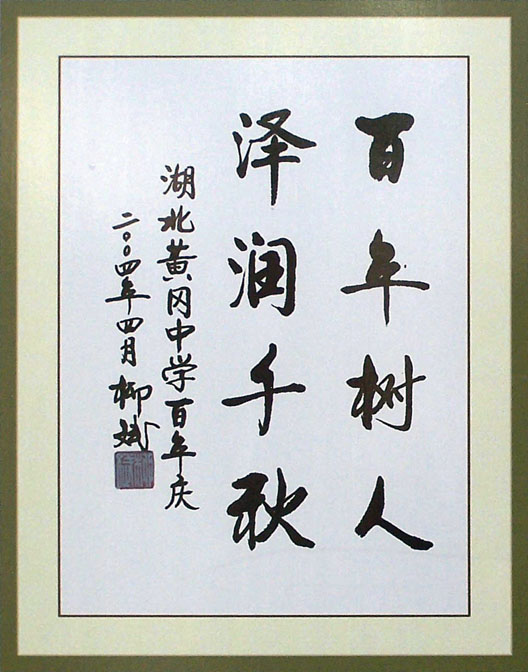 百年树人
泽润千秋
湖北黄冈中学百年庆
二〇〇四年四月 柳斌